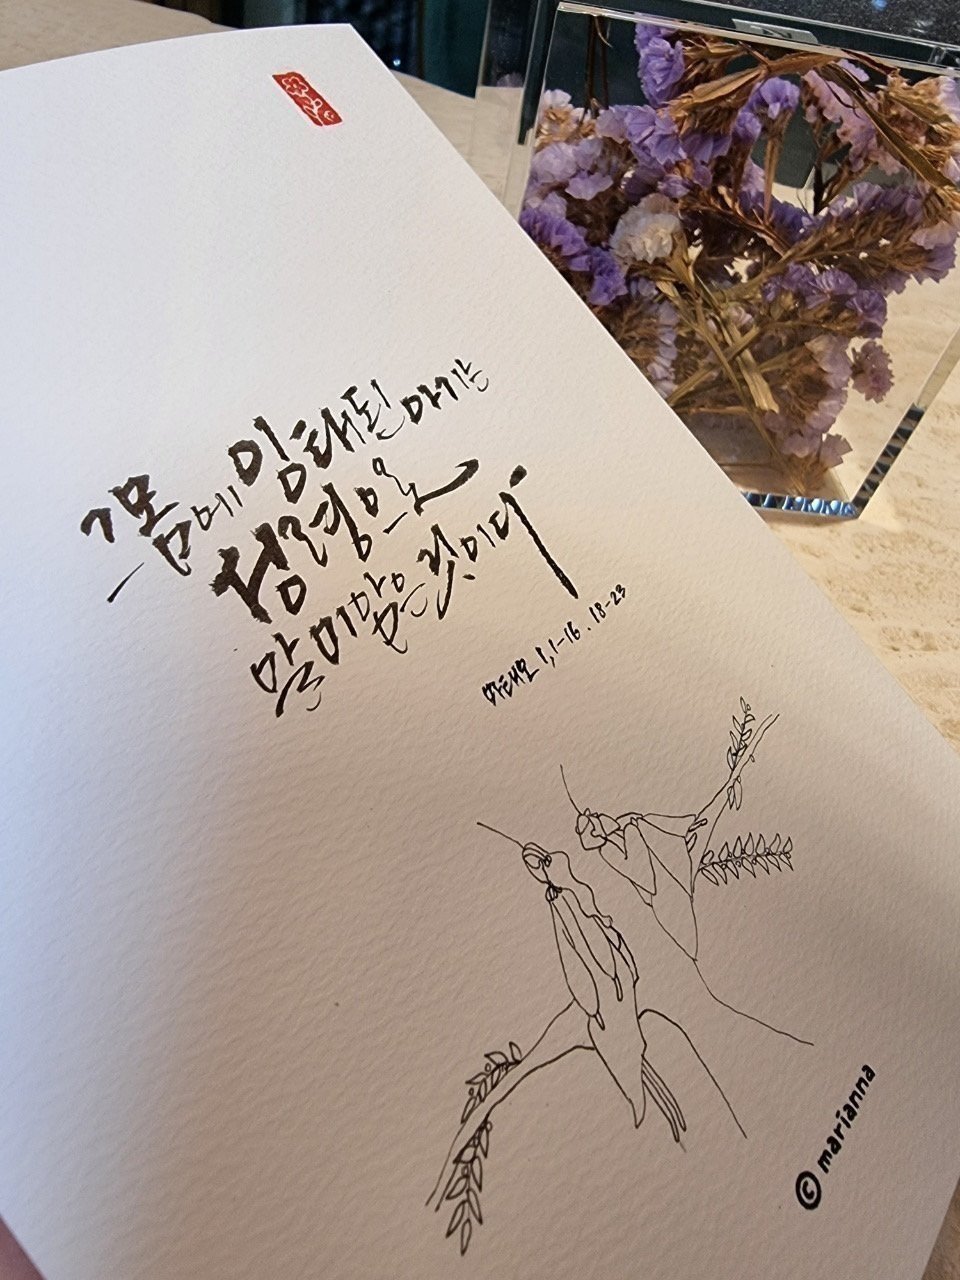 그 몸에 잉태된 아기는
성령으로
말미암은 것이다
마태오 1,1-16.18-23
© marianna